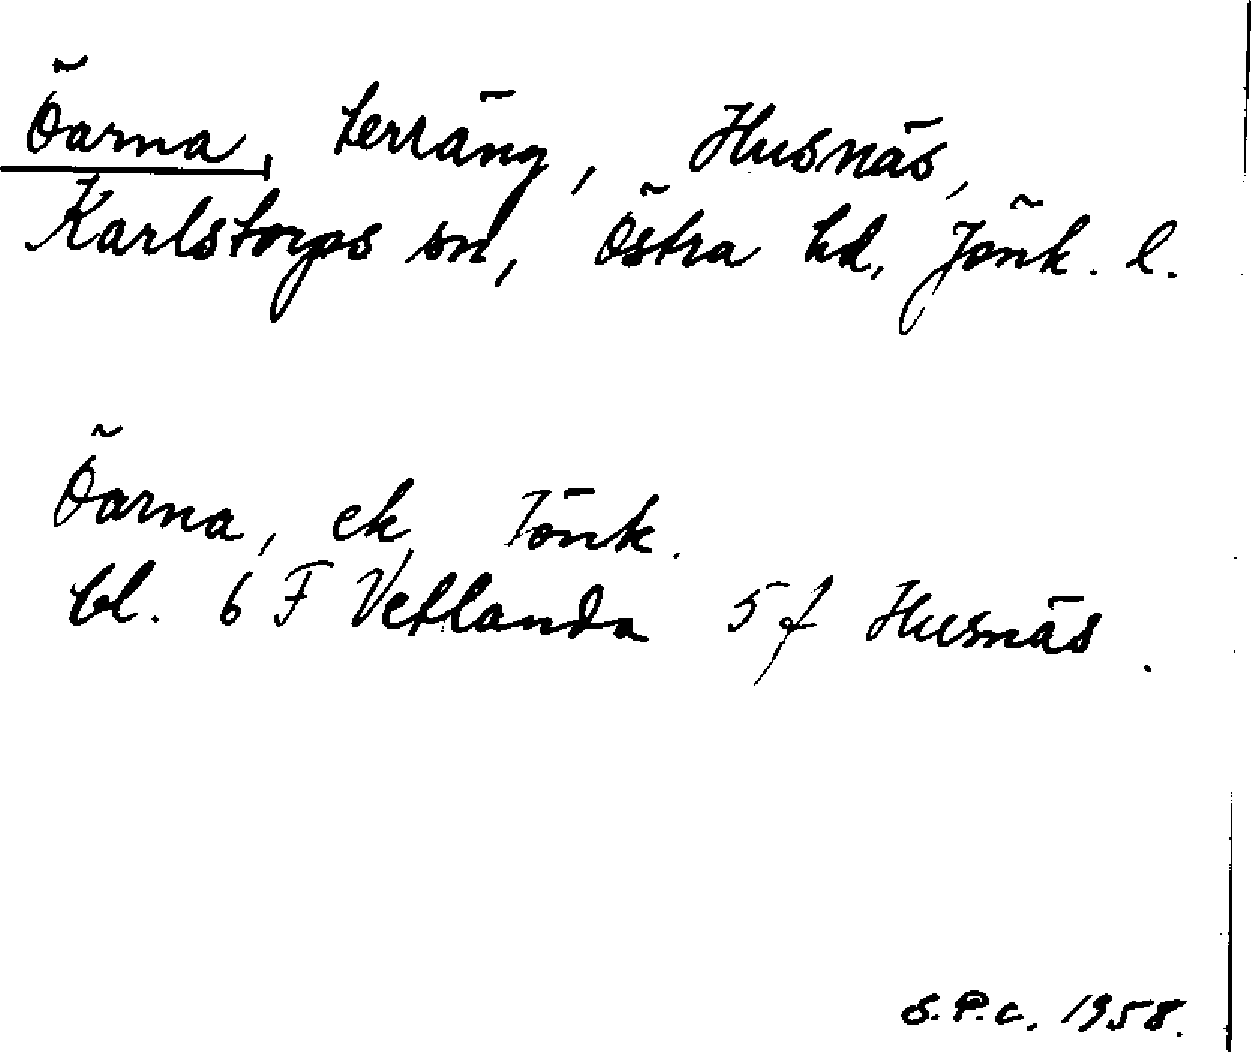 Öarna, terräng, Husnäs,
Karlstorps sn, Östra hd, Jönk. l.
Öarna, ek Tönk.
bl. 6 F Vetlanda 5 f Husnäs.
S.P.C. 1958.